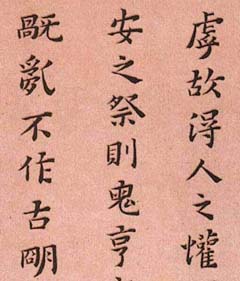 虖故得人之懽
安之祭則鬼亨
旤亂不作古朙